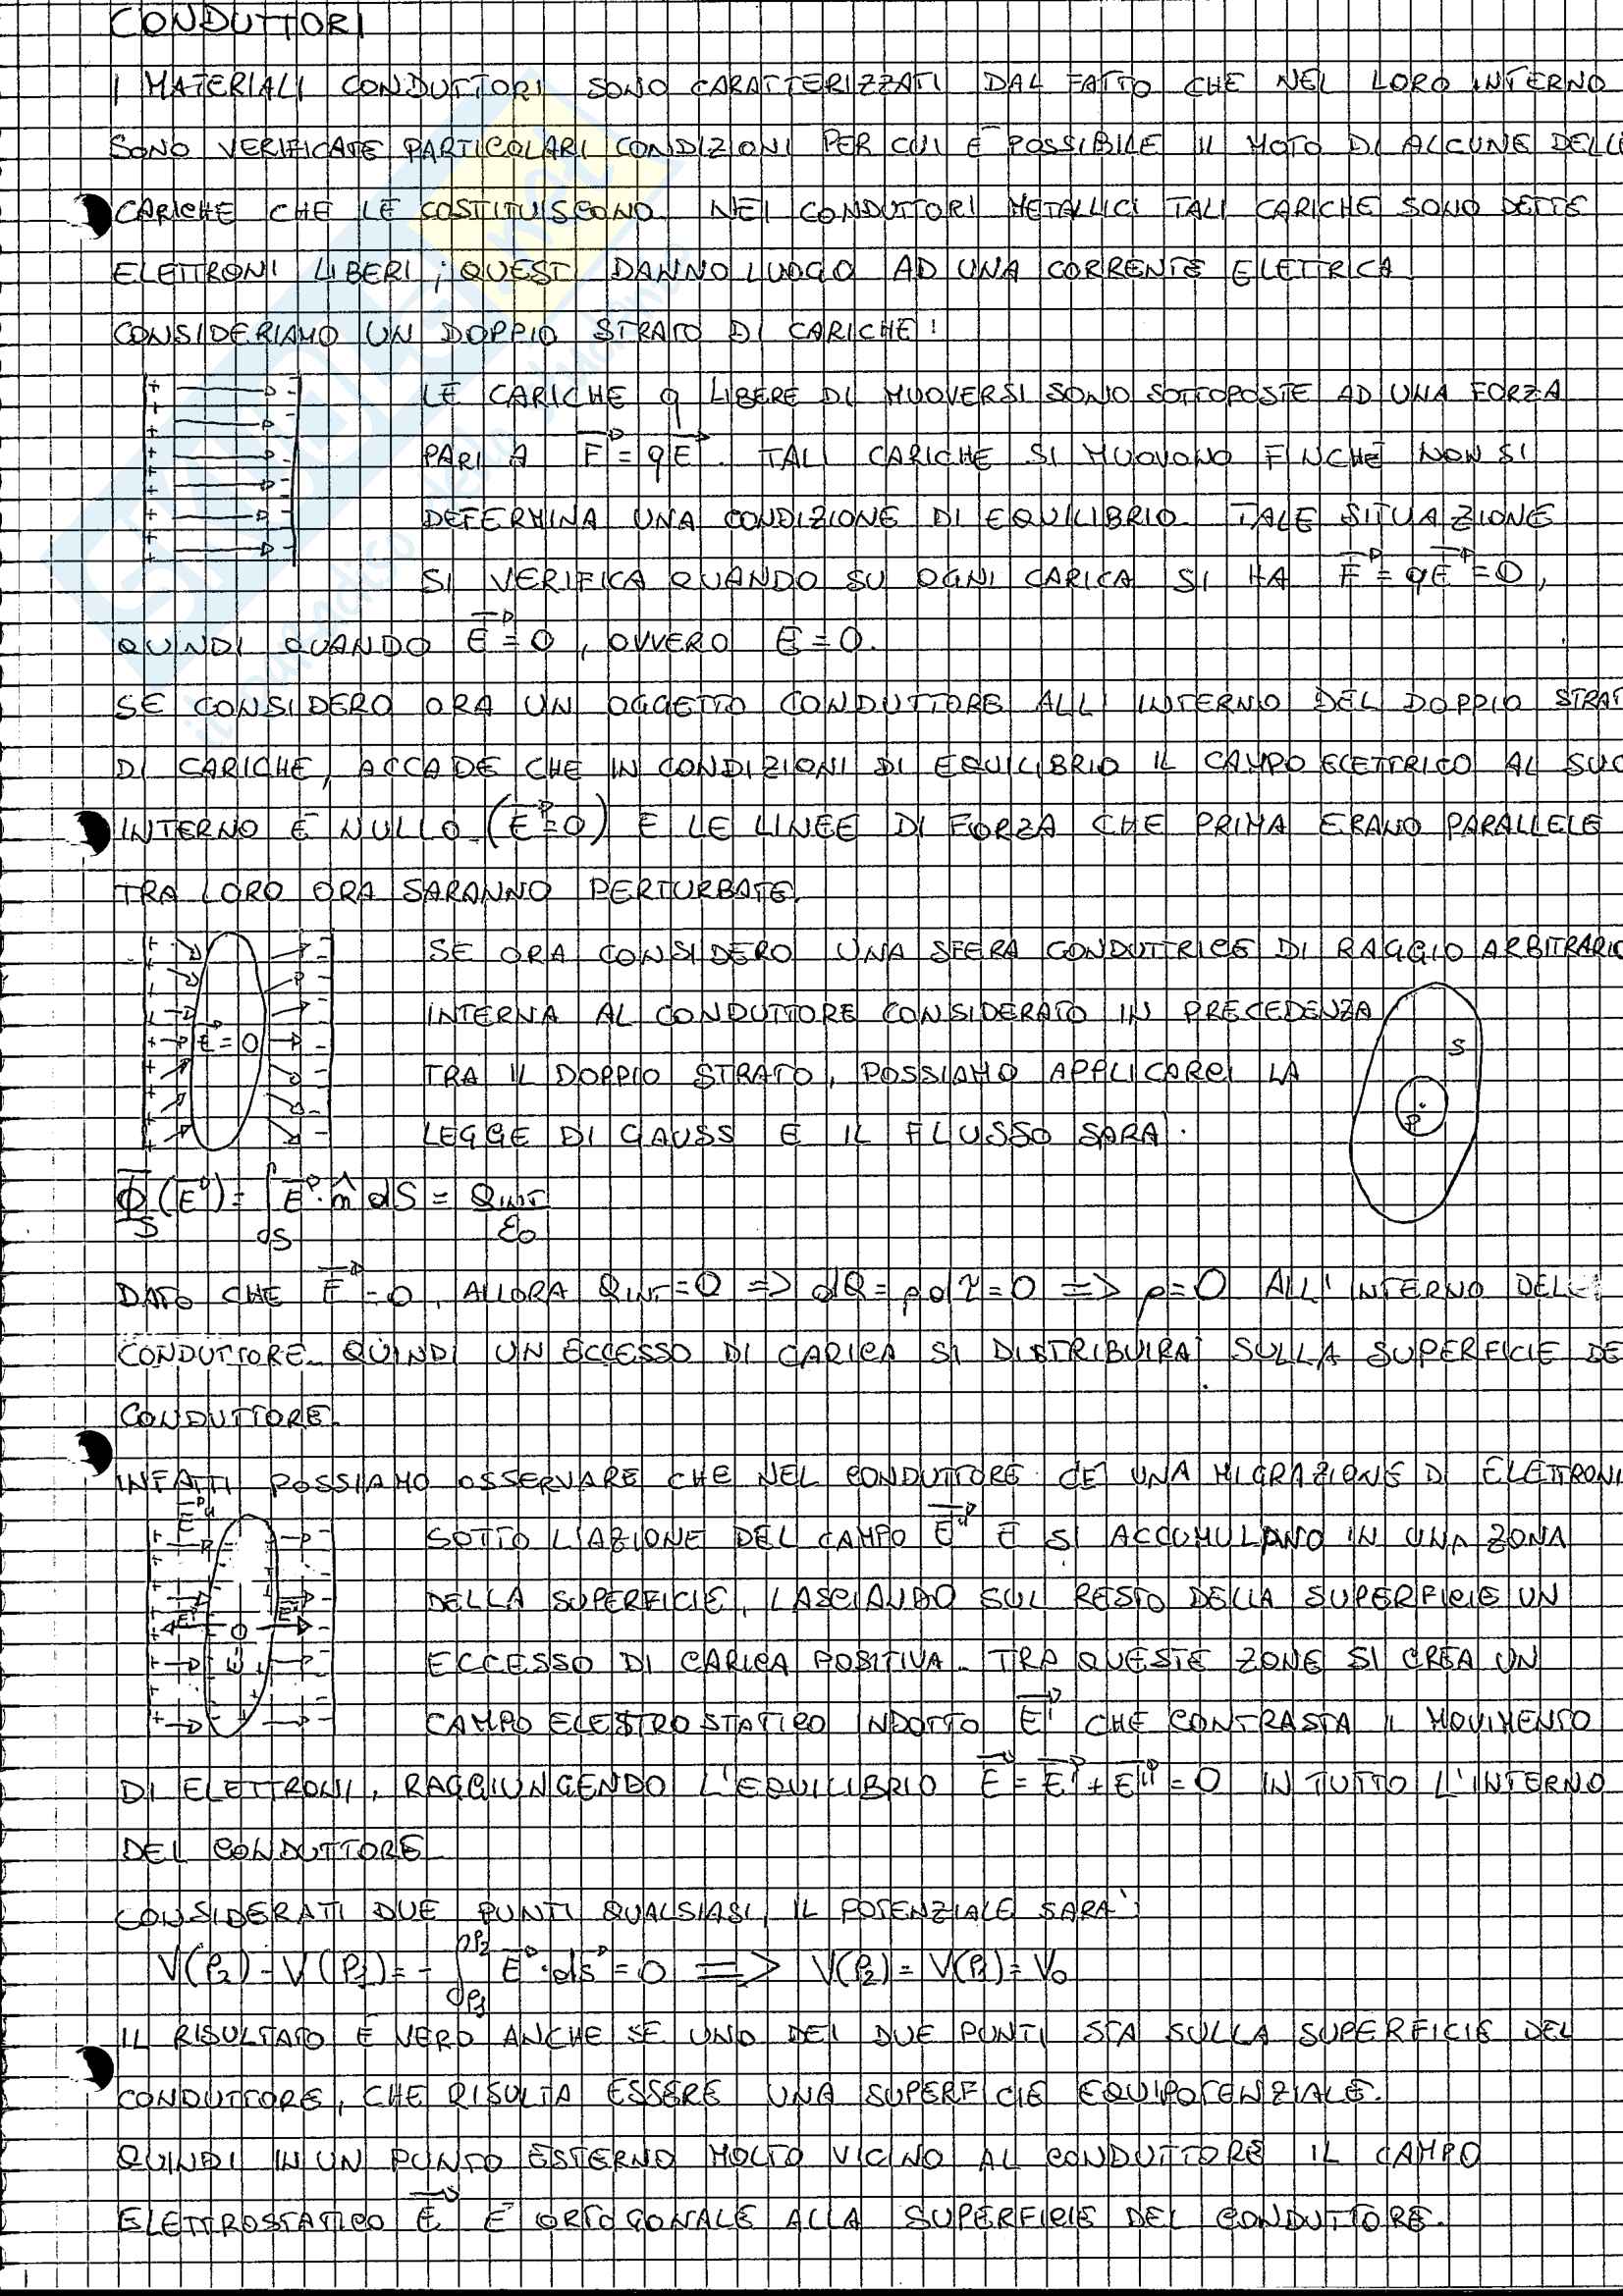 CONDUTTORI
I MATERIALI CONDUTTORI SONO CARATTERIZZATI DAL FATTO CHE NEL LORO INTERNO
SONO VERIFICATE PARTICOLARI CONDIZIONI PER CUI È POSSIBILE IL MOTO DI ALCUNE DELLE
CARICHE CHE LE COSTITUISCONO. NEI CONDUTTORI METALLICI TALI CARICHE SONO DETTE
ELETTRONI LIBERI; QUESTI DANNO LUOGO AD UNA CORRENTE ELETTRICA.
CONSIDERIAMO UN DOPPIO STRATO DI CARICHE:
LE CARICHE q LIBERE DI MUOVERSI SONO SOTTOPOSTE AD UNA FORZA
PARI A F⃗ = qE⃗. TALI CARICHE SI MUOVONO FINCHÈ NON SI
DETERMINA UNA CONDIZIONE DI EQUILIBRIO. TALE SITUAZIONE
SI VERIFICA QUANDO SU OGNI CARICA SI HA F⃗ = qE⃗ = 0,
QUINDI QUANDO E⃗ = 0, OVVERO E = 0.
SE CONSIDERO ORA UN OGGETTO CONDUTTORE ALL'INTERNO DEL DOPPIO STRAT
DI CARICHE, ACCADE CHE IN CONDIZIONI DI EQUILIBRIO IL CAMPO ELETTRICO AL SUO
INTERNO È NULLO (E⃗=0) E LE LINEE DI FORZA CHE PRIMA ERANO PARALLELE
TRA LORO ORA SARANNO PERTURBATE.
SE ORA CONSIDERO UNA SFERA CONDUTTRICE DI RAGGIO ARBITRARIO
INTERNA AL CONDUTTORE CONSIDERATO IN PRECEDENZA
E⃗ = 0
S
TRA IL DOPPIO STRATO, POSSIAMO APPLICARCI LA
P
LEGGE DI GAUSS E IL FLUSSO SARÀ:
Φ_S(E⃗) = ∫_dS E⃗·n̂ dS = Q_INT/ε₀
DATO CHE E⃗=0, ALLORA Q_INT=0 => dQ=ρdτ=0 => ρ=0 ALL'INTERNO DEL
CONDUTTORE. QUINDI UN ECCESSO DI CARICA SI DISTRIBUIRÀ SULLA SUPERFICIE DE
CONDUTTORE.
INFATTI POSSIAMO OSSERVARE CHE NEL CONDUTTORE C'È UNA MIGRAZIONE DI ELETTRONI
SOTTO L'AZIONE DEL CAMPO E⃗" E SI ACCUMULANO IN UNA ZONA
DELLA SUPERFICIE, LASCIANDO SUL RESTO DELLA SUPERFICIE UN
ECCESSO DI CARICA POSITIVA. TRA QUESTE ZONE SI CREA UN
CAMPO ELESTROSTATICO INDOTTO E⃗' CHE CONTRASTA IL MOVIMENTO
DI ELETTRONI, RAGGIUNGENDO L'EQUILIBRIO E⃗ = E⃗' + E⃗" = 0 IN TUTTO L'INTERNO
DEL CONDUTTORE
CONSIDERATI DUE PUNTI QUALSIASI, IL POTENZIALE SARÀ:
V(P₂) - V(P₁) = - ∫_P₁^P₂ E⃗·ds⃗ = 0 => V(P₂) = V(P₁) = V₀
IL RISULTATO È VERO ANCHE SE UNO DEI DUE PUNTI STA SULLA SUPERFICIE DEL
CONDUTTORE, CHE RISULTA ESSERE UNA SUPERFICIE EQUIPOTENZIALE.
QUINDI IN UN PUNTO ESTERNO MOLTO VICINO AL CONDUTTORE IL CAMPO
ELETTROSTATICO E⃗ È ORTOGONALE ALLA SUPERFICIE DEL CONDUTTORE.